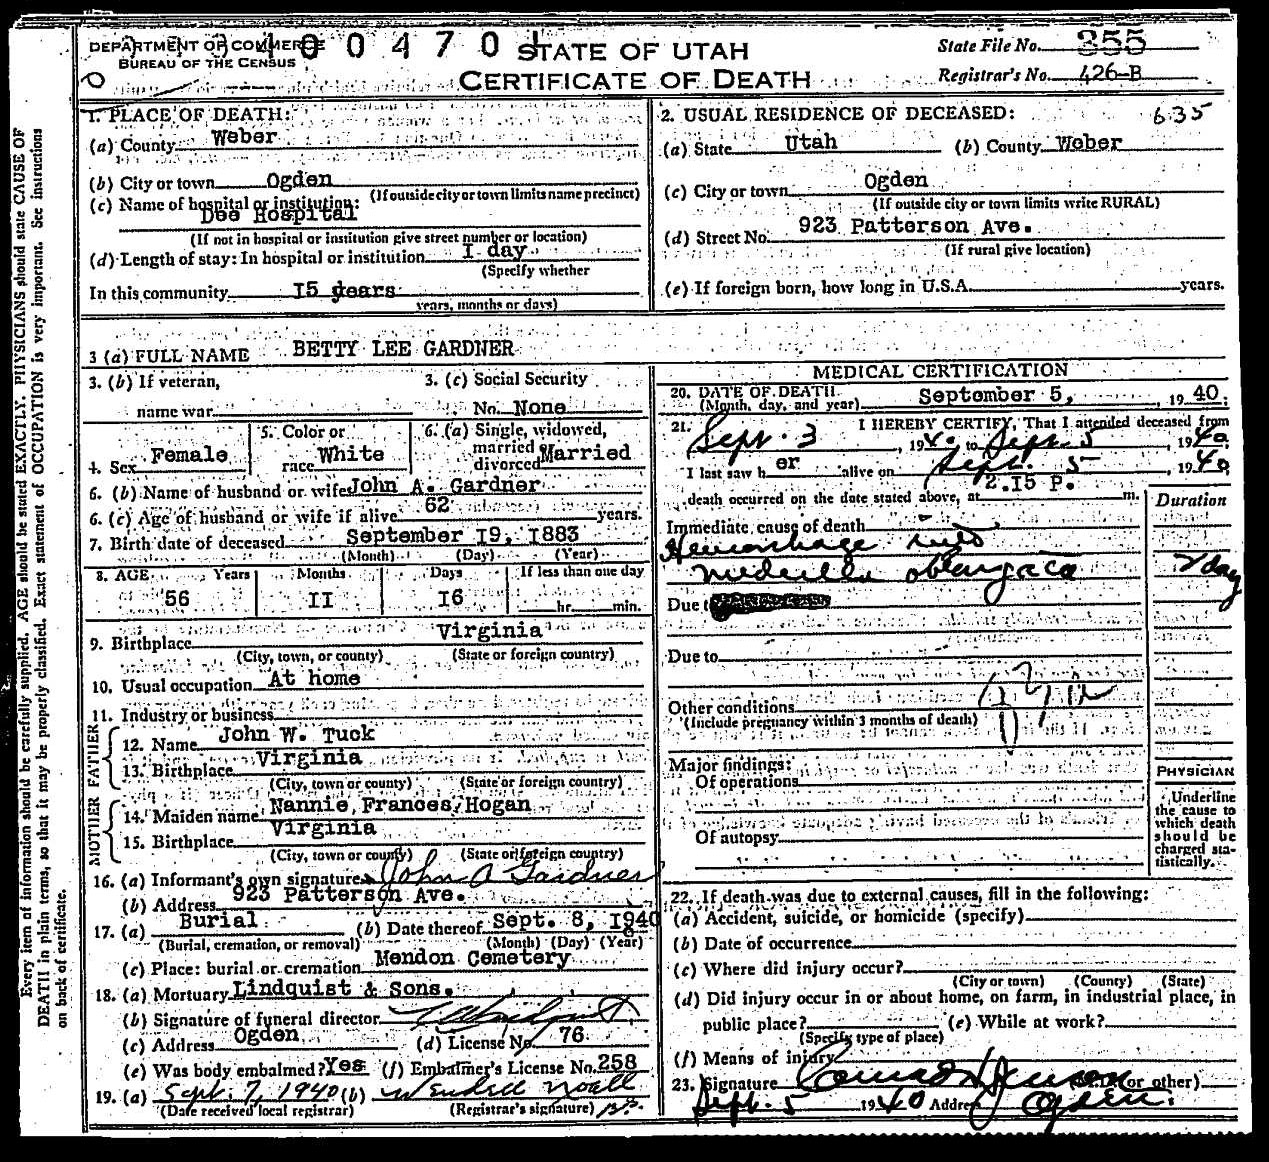 DEPARTMENT OF COMMERCE
BUREAU OF THE CENSUS
4004701
STATE OF UTAH
CERTIFICATE OF DEATH
State File No. 355
Registrar's No. 426-B
635
1. PLACE OF DEATH:
(a) County Weber
(b) City or town Ogden
(If outside city or town limits name precinct)
(c) Name of hospital or institution:
Dee Hospital
(If not in hospital or institution give street number or location)
(d) Length of stay: In hospital or institution I day
(Specify whether
In this community I5 years
years, months or days)
2. USUAL RESIDENCE OF DECEASED:
(a) State Utah (b) County Weber
(c) City or town Ogden
(If outside city or town limits write RURAL)
(d) Street No. 923 Patterson Ave.
(If rural give location)
(e) If foreign born, how long in U.S.A. years.
3 (a) FULL NAME BETTY LEE GARDNER
3. (b) If veteran,
name war
3. (c) Social Security
No. None
4. Sex Female
5. Color or
race White
6. (a) Single, widowed,
married
divorced Married
6. (b) Name of husband or wife John A. Gardner
6. (c) Age of husband or wife if alive 62 years.
7. Birth date of deceased September I9, I883
(Month) (Day) (Year)
8. AGE Years Months Days If less than one day
56 II I6 hr. min.
9. Birthplace Virginia
(City, town, or county) (State or foreign country)
10. Usual occupation At home
11. Industry or business
FATHER
12. Name John W. Tuck
13. Birthplace Virginia
(City, town or county) (State or foreign country)
MOTHER
14. Maiden name Nannie Frances Hogan
15. Birthplace Virginia
(City, town or county) (State or foreign country)
16. (a) Informant's own signature John A Gardner
(b) Address 923 Patterson Ave.
17. (a) Burial (b) Date thereof Sept. 8, I940
(Burial, cremation, or removal) (Month) (Day) (Year)
(c) Place: burial or cremation Mendon Cemetery
18. (a) Mortuary Lindquist & Sons.
(b) Signature of funeral director
(c) Address Ogden (d) License No. 76
(e) Was body embalmed? Yes (f) Embalmer's License No. 258
19. (a) Sept. 7, 1940 (b) Wendell Noall
(Date received local registrar) (Registrar's signature)
MEDICAL CERTIFICATION
20. DATE OF DEATH
(Month, day, and year) September 5, , 19 40;
21. I HEREBY CERTIFY, That I attended deceased from
Sept. 3, 1940 to Sept. 5 1940
I last saw h er alive on Sept. 5, 1940
death occurred on the date stated above, at 2.I5 P. m.
Duration
Immediate cause of death
Hemorrhage into
medulla oblongata 2 day
Due to
Due to
Other conditions
(Include pregnancy within 3 months of death)
Major findings:
Of operations
Of autopsy
PHYSICIAN
Underline
the cause to
which death
should be
charged sta-
tistically.
22. If death was due to external causes, fill in the following:
(a) Accident, suicide, or homicide (specify)
(b) Date of occurrence
(c) Where did injury occur?
(City or town) (County) (State)
(d) Did injury occur in or about home, on farm, in industrial place, in
public place? (e) While at work?
(Specify type of place)
(f) Means of injury
23. Signature Conrad H Jensen (or other)
Sept. 5 1940 Address Ogden.
Every item of information should be carefully supplied. AGE should be stated EXACTLY. PHYSICIANS should state CAUSE OF
DEATH in plain terms, so that it may be properly classified. Exact statement of OCCUPATION is very important. See instructions
on back of certificate.